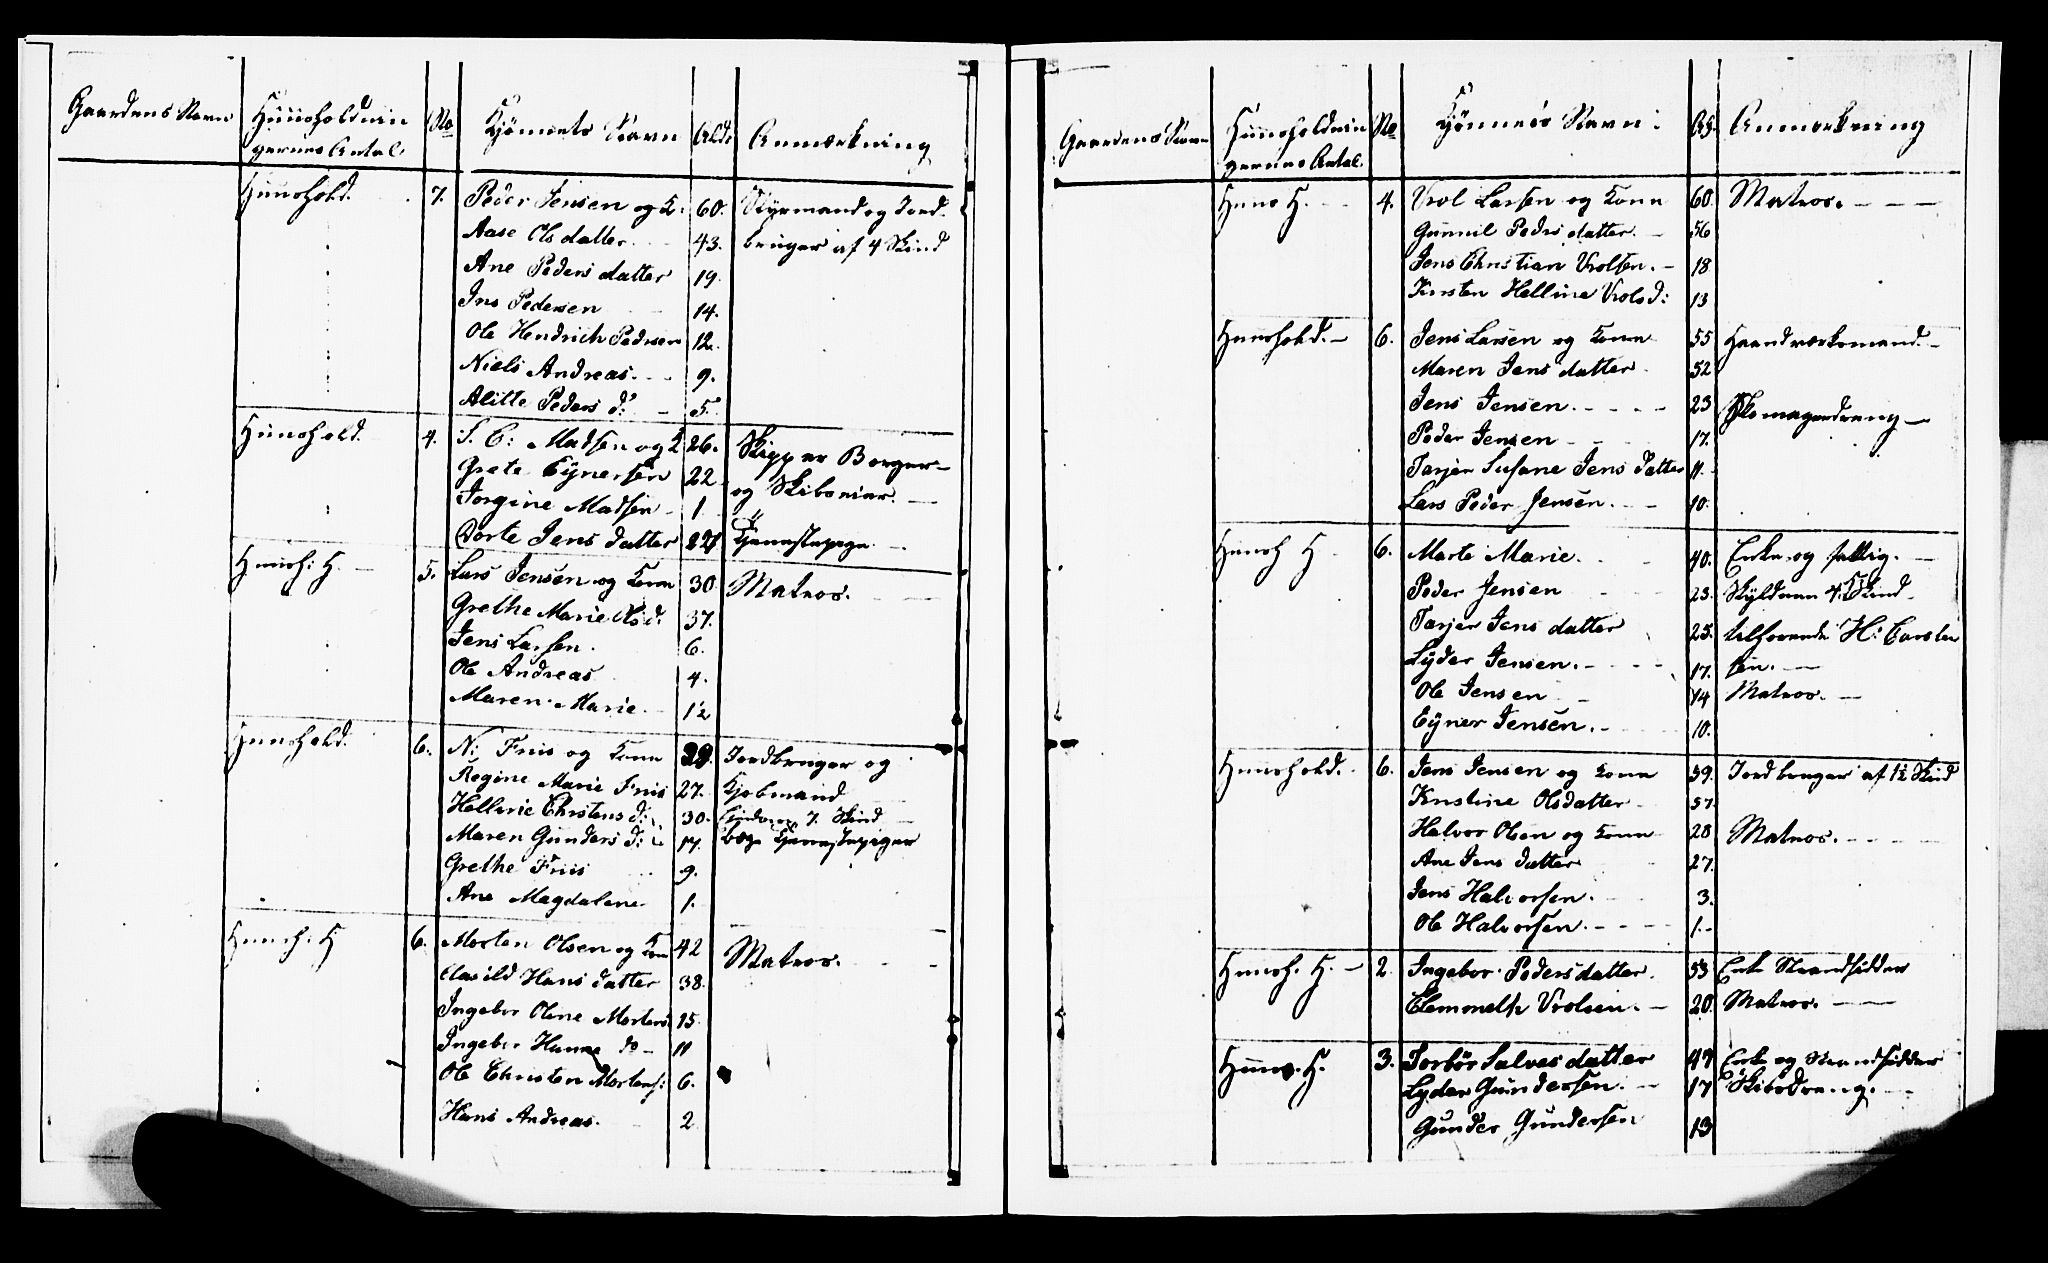 Gaardens Navn Huusholdnin No Kjönnets Navn Ald: Anmærkning
gernes Antal.
Huushold. 7. Peder Jensen og K: 60. Styrmand og Jord-
Aase Olsdatter. 43. bruger af 4 Skind
Ane Peders datter 19.
Jns Pedersen 14.
Ole Hendrich Pedersen 12.
Niels Andreas. 9.
Alitte Peders d: 5.
Huushold. 4. S. C: Madsen og K 26. Skipper Borger
Grete Eynersen 22 og Skibseier.
Jorgine Madsen 1
Dorte Jens datter 22 Tjenestepige
Huush: H. 5. Lars Jensen og Kone 30. Matros.
Grethe Marie Olsd: 37.
Jens Larsen. 6.
Ole Andreas 4.
Maren Marie 1½
Huushold. 6. N: Friis og Kone 39. Jordbruger og
Regine Marie Friis 27. Kjøbmand
Hellevie Christens d: 30. 7. Skind
Maren Gunders d: 17. begge Tjenestepiger
Grethe Friis 9.
Ane Magdalene 1.
Huush: H 6. Morten Olsen og Kone 42 Matros.
Aasild Hans datter 38.
Ingebor Oline Mortens 15
Ingebor Hanne do 11
Ole Christen Mortens: 6.
Hans Andreas. 2
Gaardens Navn Huusholdnin No Kjönnets Navn: Al. Anmærkning
gernes Antal.
Huus H. 4. Vrol Larsen og Kone 60. Matros.
Gunnil Peders datter. 56
Jens Christian Vrolsen. 18
Kirsten Helline Vrols d: 13
Huushold. 6. Jens Larsen og Kone 55 Haandværksmand.
Maren Jens datter 52
Jens Jensen. 23 Skomagerdreng
Peder Jensen 17.
Tarjer Susane Jens datter 11.
Lars Peder Jensen. 10.
Huush H 6. Marte Marie. 40. Enke og fattig.
Peder Jensen 23. Skylduen 4. Skind
Tarjer Jens datter 25. tilhørende H: Carsten
Lyder Jensen. 17. sen.
Ole Jensen 14 Matros.
Eyner Jensen. 10.
Huushold. 6. Jens Jensen og Kone 59. Jordbruger af 1½ Skind
Kirstine Olsdatter 57.
Halvor Olsen og Kone 28 Matros.
Ane Jens datter 27.
Jens Halvorsen. 3.
Ole Halvorsen. 1.
Huush. H. 2. Ingebor Peders datter. 53 Enke Strandsidder
Clemmelh Vrolsen. 20. Matros.
Huus. H. 3. Torbör Salves datter 47 Enke og Strandsidder
Lyder Gundersen. 17 Skibsdreng.
Gunder Gundersen 13